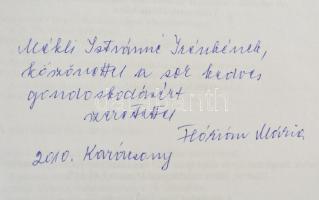 Mékli Istvánné Irénkének,
köszönettel a sok kedves
gondoskodásért
szeretettel
Flórián Mária
2010. Karácsony